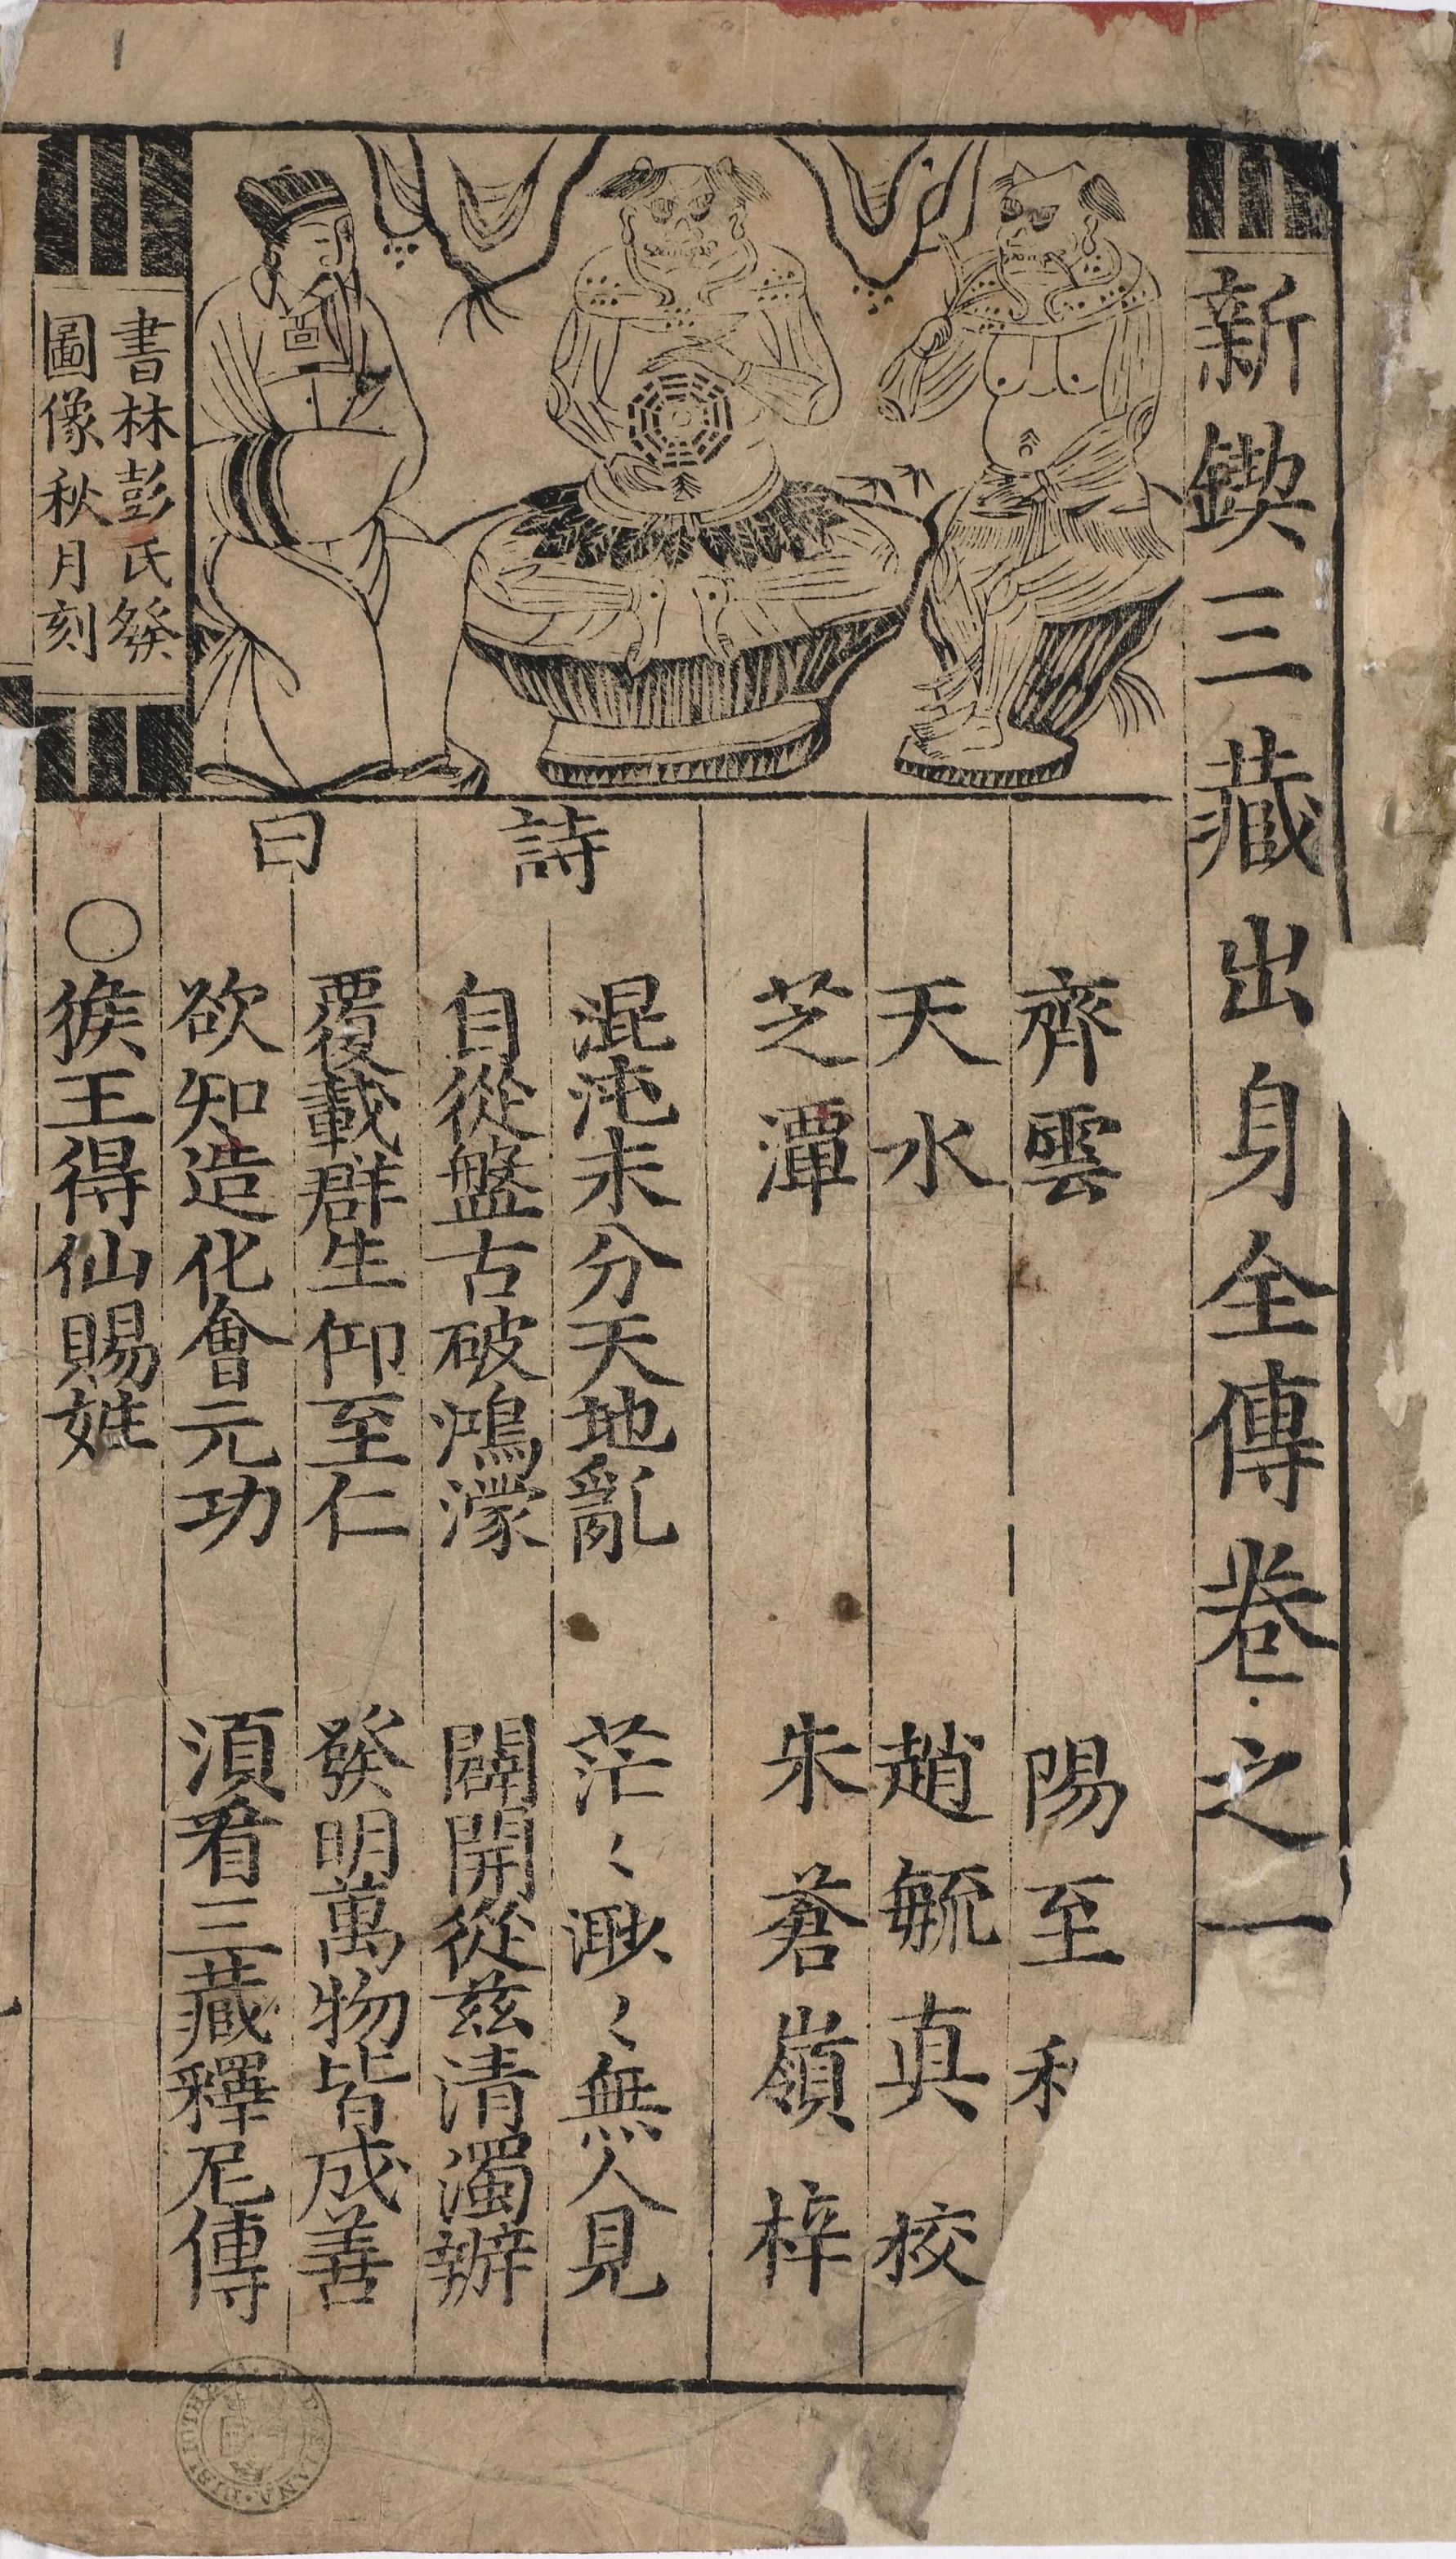 新鍥三藏出身全傳卷之一
齊雲 陽至和
天水 趙毓真 校
芝潭 朱蒼嶺 梓
詩曰
混沌未分天地亂 茫〻渺〻無人見
自從盤古破鴻濛 闢開從茲清濁辦
覆載群生仰至仁 發明萬物皆成善
欲知造化會元功 湏看三藏釋尼傳
○猴王得仙賜姓
書林彭氏發
圖像秋月刻
1